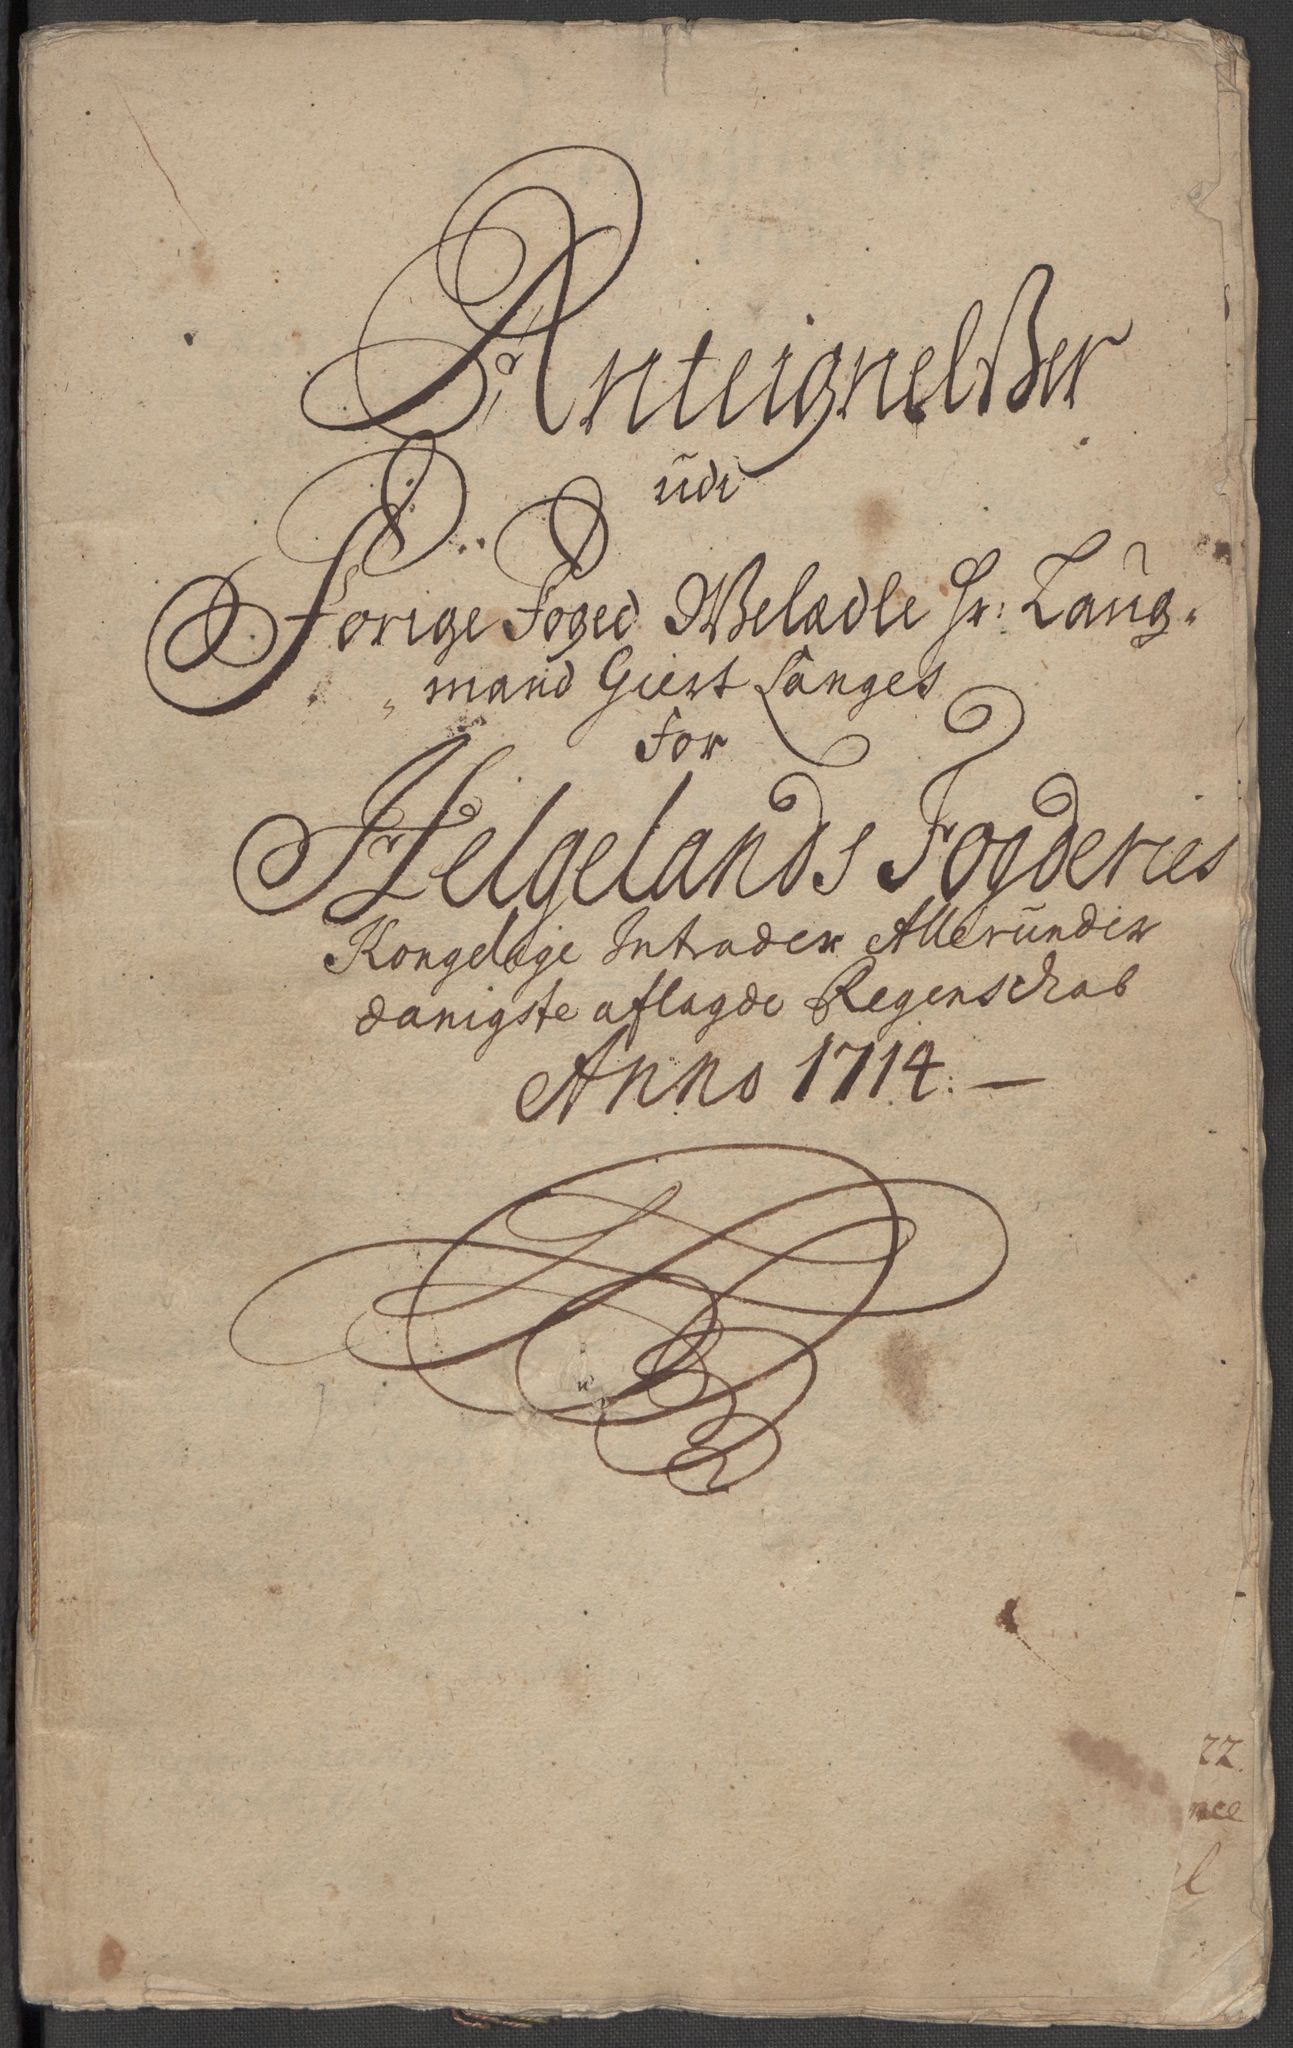 Anteignelßer
udi
Forige Foged Welædle Hr: Laug-
mand Giert Langes
for
Helgelands Fogderies
Kongelige Intrader Allerunder
danigste aflagde Regenschab
Anno 1714. —
22.
nce
l